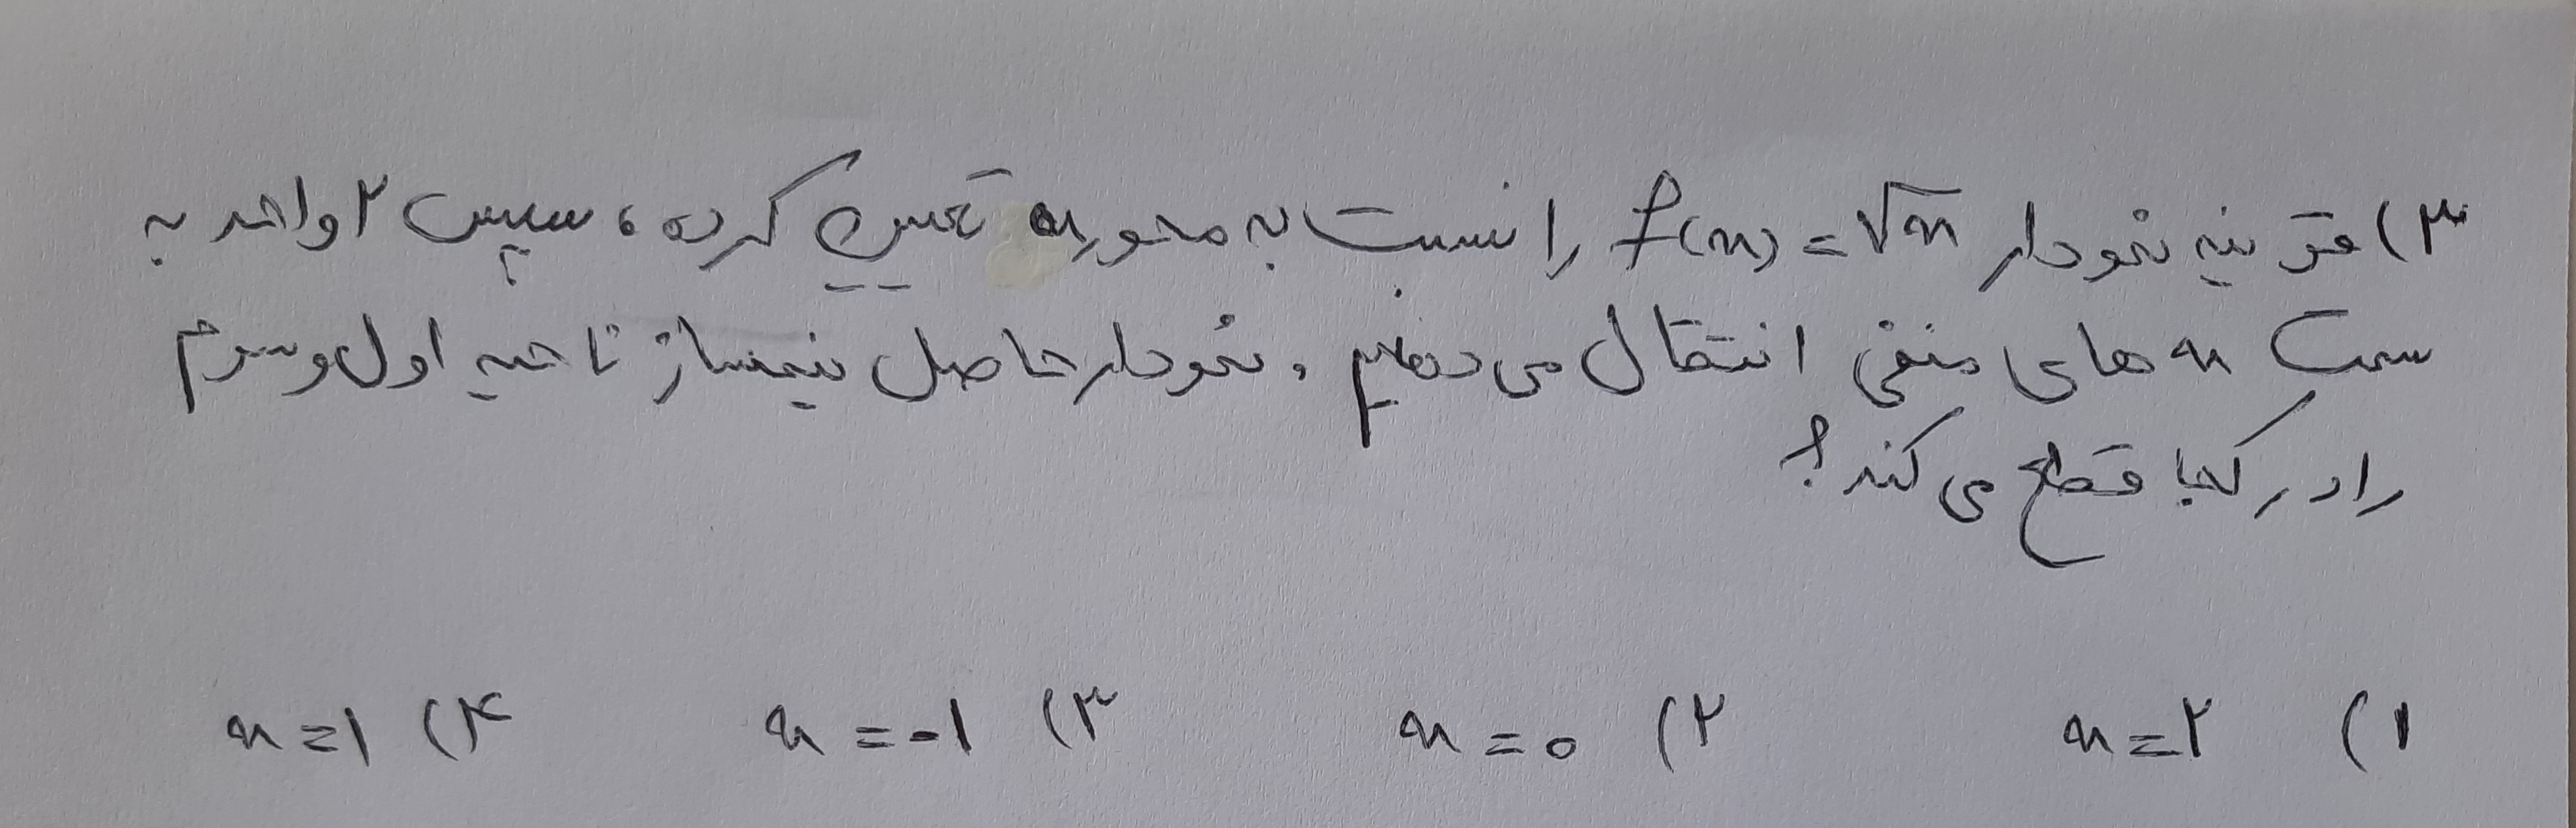 ۳) قرینه نمودار f(x) = √x را نسبت به محور x تعیین کرده، سپس ۲ واحد به
سمت x های منفی انتقال می دهیم. نمودار حاصل نیمساز ناحیه اول و سوم
را در کجا قطع می کند؟
۱) x = ۲ ۲) x = ۰ ۳) x = -۱ ۴) x = ۱